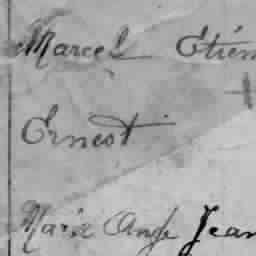 Marcel Etien
Ernest
Marie Ange Jean